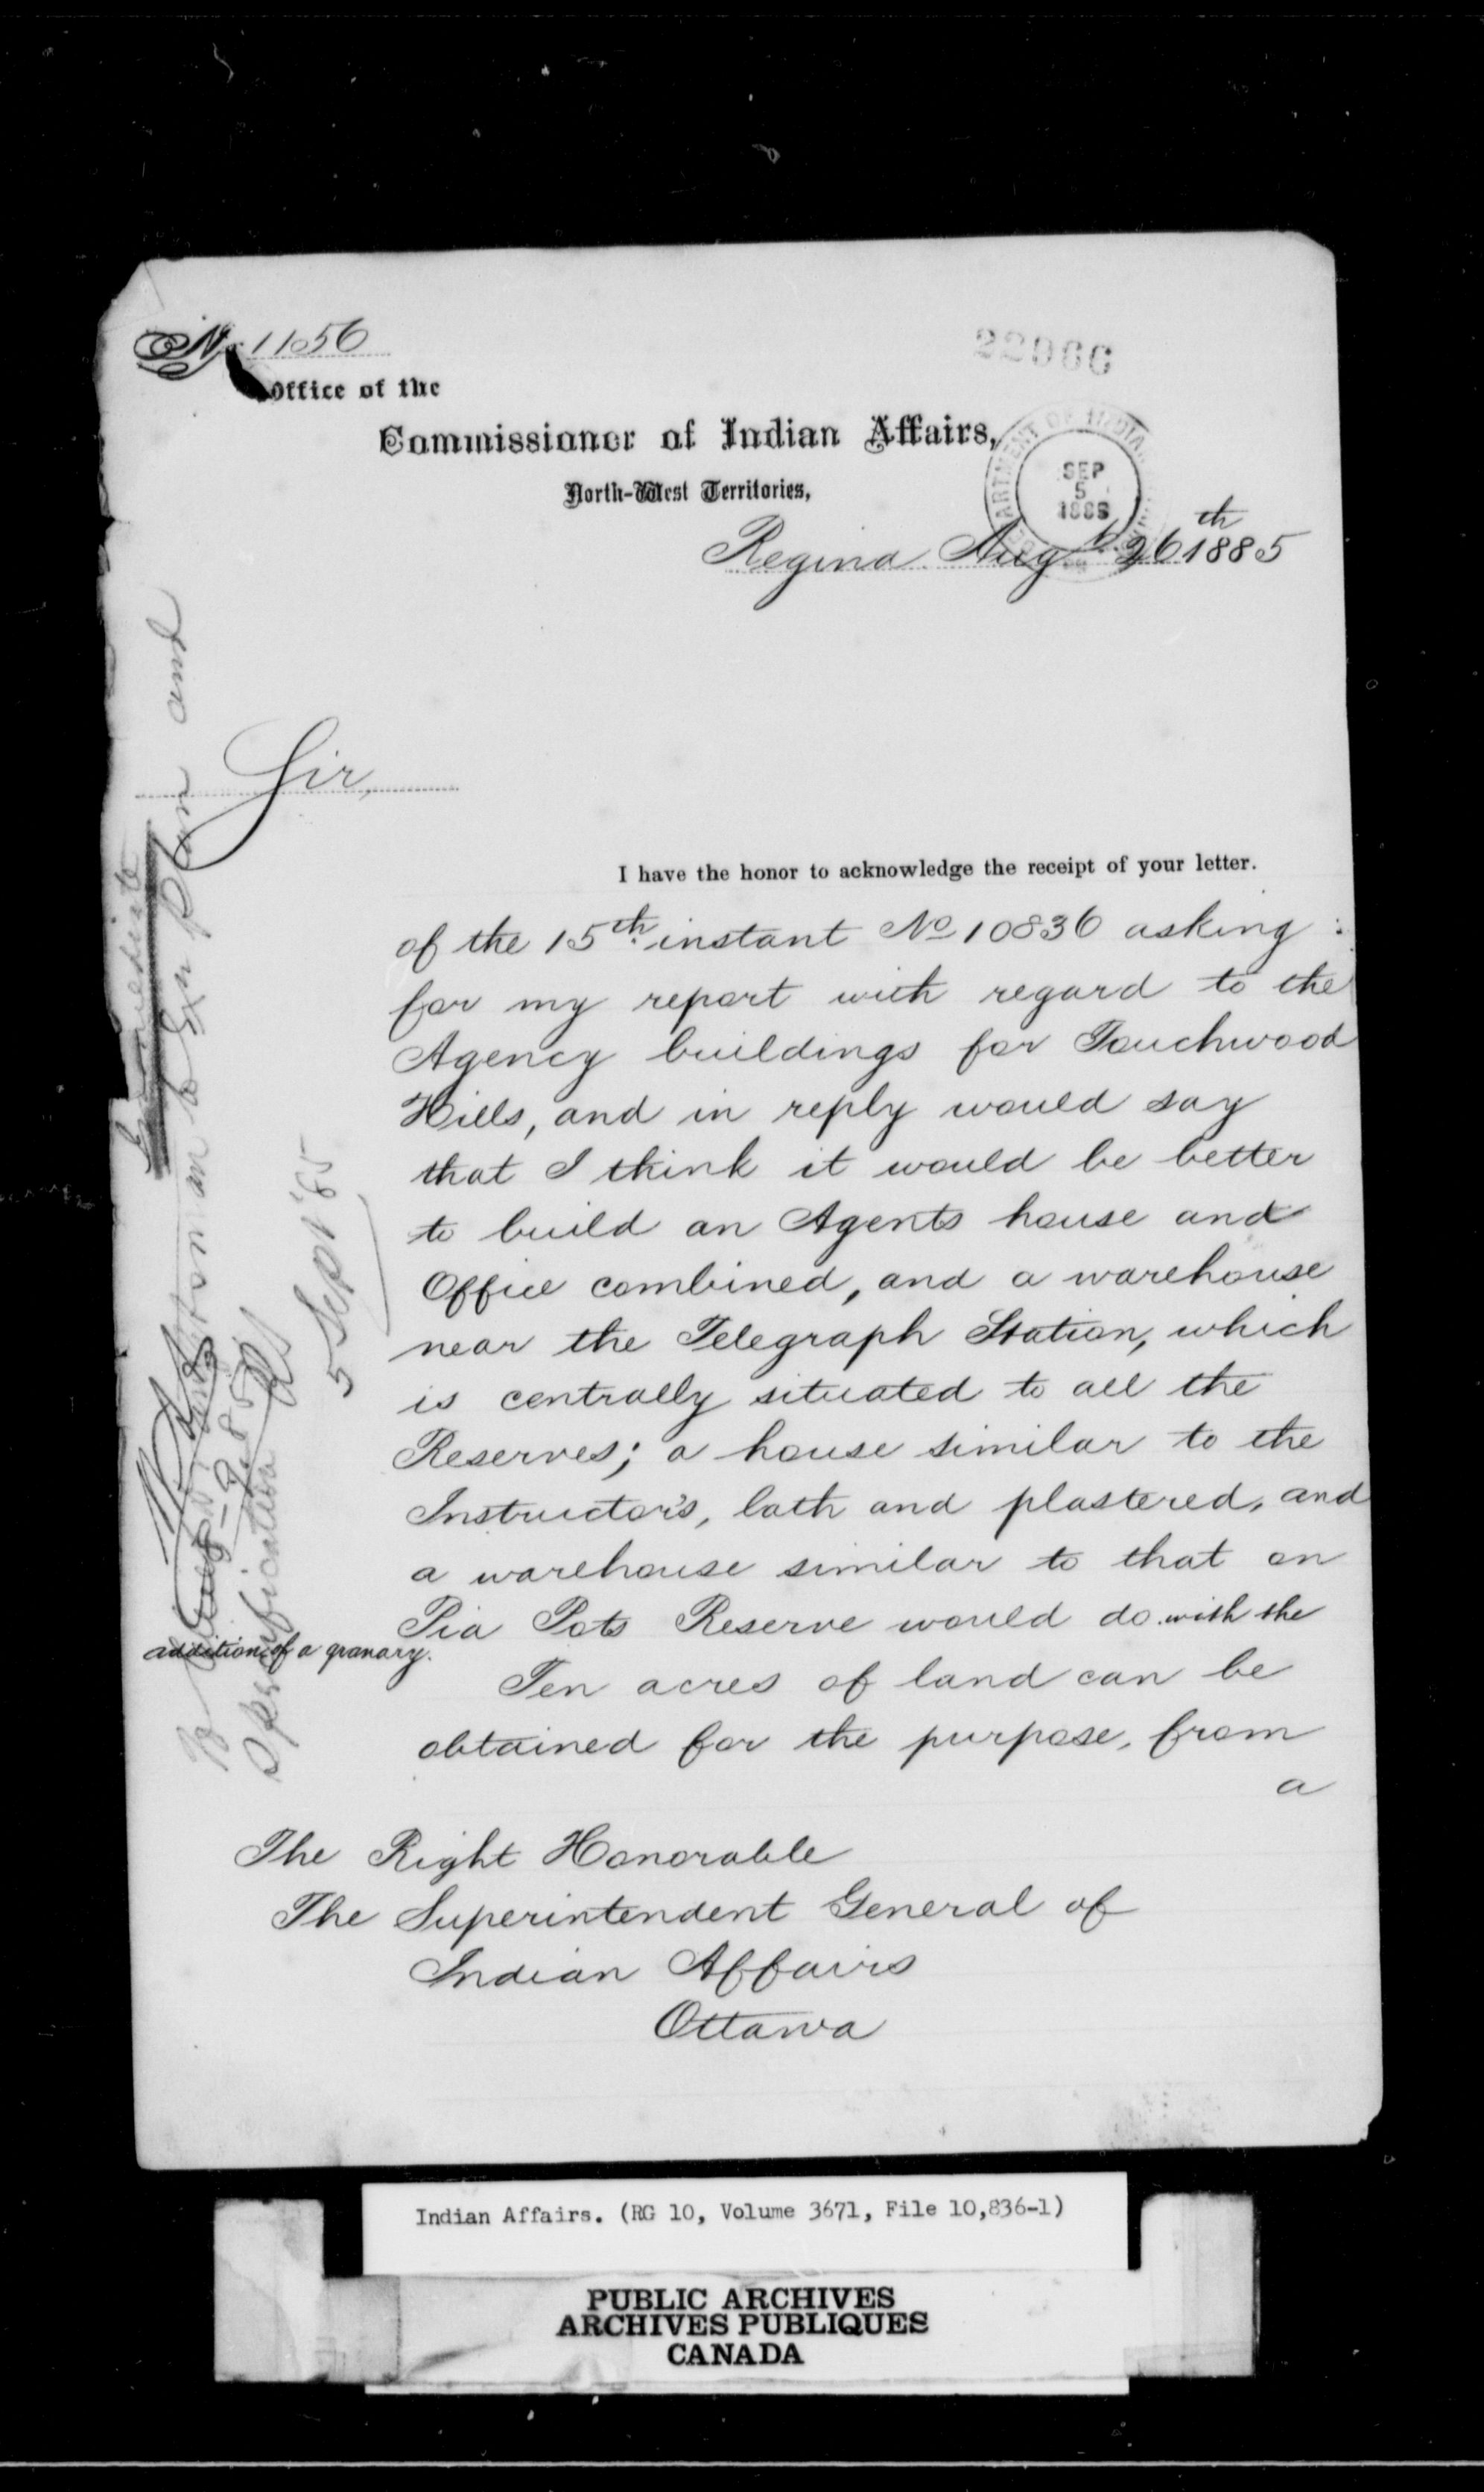 No. 11056
22066
Office of the
Commissioner of Indian Affairs,
North-West Territories,
SEP
5
1885
Regina Augt. 26th 1885
Sir,
I have the honor to acknowledge the receipt of your letter.
of the 15th. instant No 10836 asking :
for my report with regard to the
Agency buildings for Touchwood
Hills, and in reply would say
that I think it would be better
to build an Agents house and
Office combined, and a warehouse
near the Telegraph Station, which
is centrally situated to all the
Reserves; a house similar to the
Instructor's, lath and plastered, and
a warehouse similar to that on
Pia Pots Reserve would do with the
addition of a granary.
Ten acres of land can be
obtained for the purpose, from
a
The Right Honorable
The Superintendent General of
Indian Affairs
Ottawa
plan and
specification
5 Sept '85
Indian Affairs. (RG 10, Volume 3671, File 10,836-1)
PUBLIC ARCHIVES
ARCHIVES PUBLIQUES
CANADA